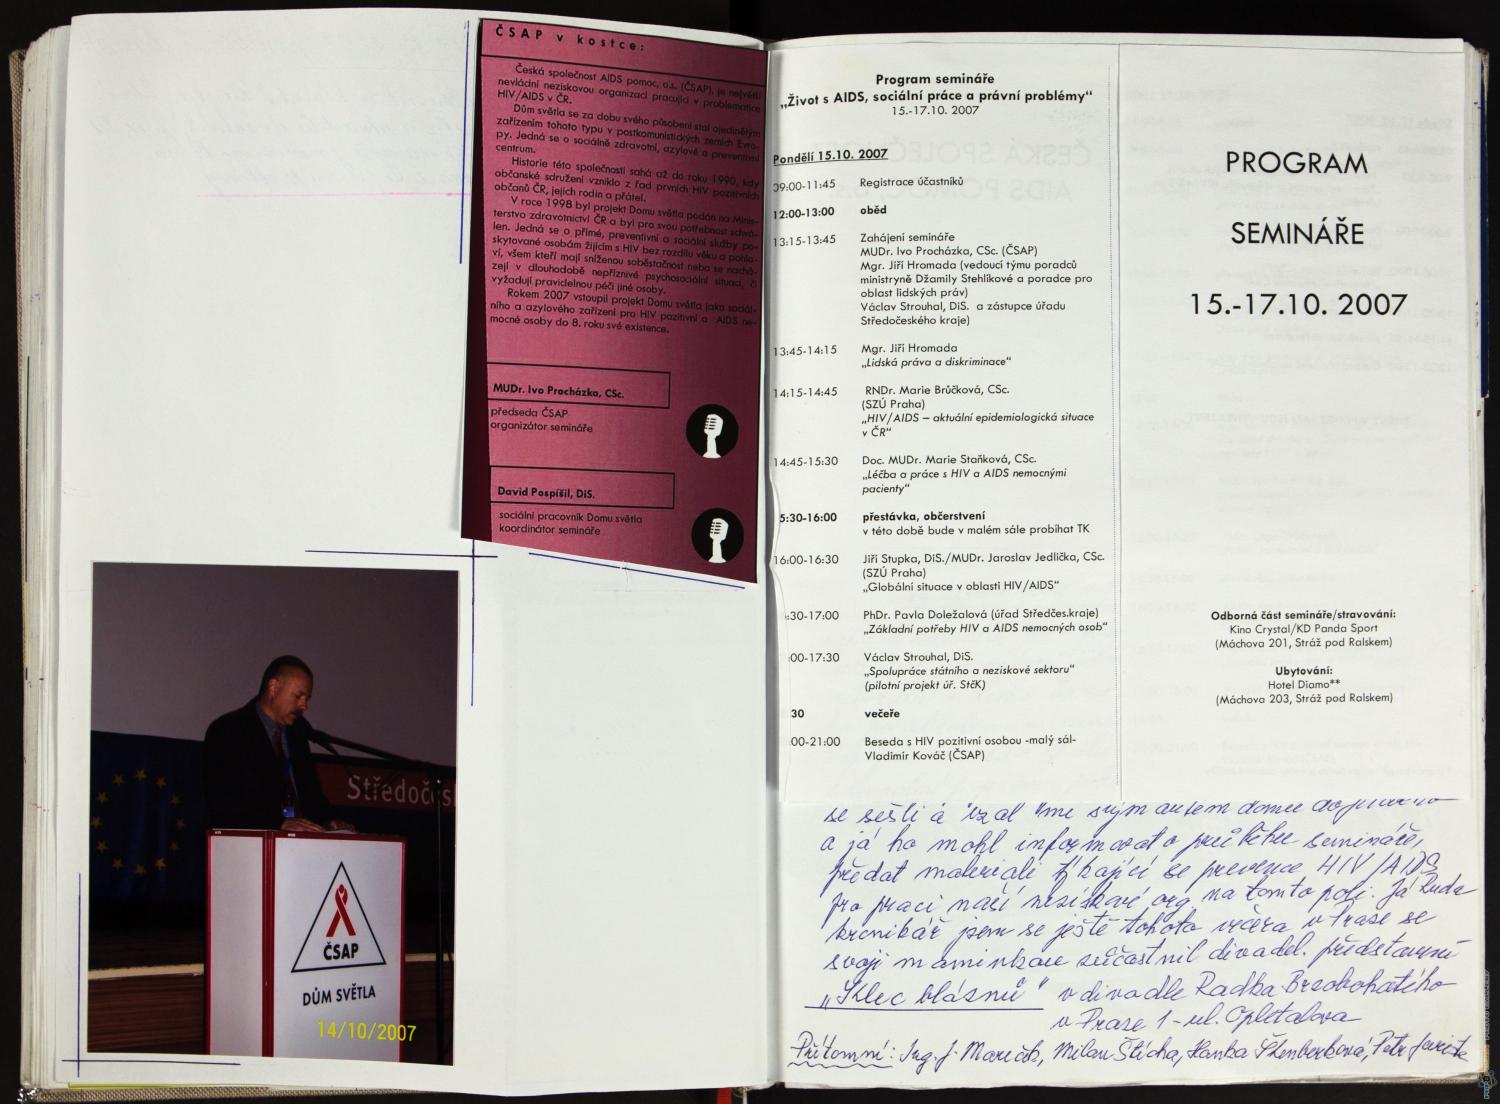 ČSAP v kostce:
Česká společnost AIDS pomoc, o.s. (ČSAP), je největší
nevládní neziskovou organizací pracující v problematice
HIV/AIDS v ČR.
Dům světla se za dobu svého působení stal ojedinělým
zařízením tohoto typu v postkomunistických zemích Evro-
py. Jedná se o sociálně zdravotní, azylové a preventivní
centrum.
Historie této společnosti sahá až do roku 1990, kdy
občanské sdružení vzniklo z řad prvních HIV pozitivních
občanů ČR, jejich rodin a přátel.
V roce 1998 byl projekt Domu světla podán na Minis-
terstvo zdravotnictví ČR a byl pro svou potřebnost schvá-
len. Jedná se o přímé, preventivní a sociální služby po-
skytované osobám žijícím s HIV bez rozdílu věku a pohla-
ví, všem kteří mají sníženou soběstačnost nebo se nachá-
zejí v dlouhodobě nepříznivé psychosociální situaci, či
vyžadují pravidelnou péči jiné osoby.
Rokem 2007 vstoupil projekt Domu světla jako sociál-
ního a azylového zařízení pro HIV pozitivní a AIDS ne-
mocné osoby do 8. roku své existence.
MUDr. Ivo Procházka, CSc.
předseda ČSAP
organizátor semináře
David Pospíšil, DiS.
sociální pracovník Domu světla
koordinátor semináře
Středočes
ČSAP
DŮM SVĚTLA
14/10/2007
Program semináře
„Život s AIDS, sociální práce a právní problémy“
15.-17.10. 2007
Pondělí 15.10. 2007
09:00-11:45 Registrace účastníků
12:00-13:00 oběd
13:15-13:45 Zahájení semináře
MUDr. Ivo Procházka, CSc. (ČSAP)
Mgr. Jiří Hromada (vedoucí týmu poradců
ministryně Džamily Stehlíkové a poradce pro
oblast lidských práv)
Václav Strouhal, DiS. a zástupce úřadu
Středočeského kraje)
13:45-14:15 Mgr. Jiří Hromada
„Lidská práva a diskriminace“
14:15-14:45 RNDr. Marie Brůčková, CSc.
(SZÚ Praha)
„HIV/AIDS – aktuální epidemiologická situace
v ČR“
14:45-15:30 Doc. MUDr. Marie Staňková, CSc.
„Léčba a práce s HIV a AIDS nemocnými
pacienty“
5:30-16:00 přestávka, občerstvení
v této době bude v malém sále probíhat TK
16:00-16:30 Jiří Stupka, DiS./MUDr. Jaroslav Jedlička, CSc.
(SZÚ Praha)
„Globální situace v oblasti HIV/AIDS“
:30-17:00 PhDr. Pavla Doležalová (úřad Středčes.kraje)
„Základní potřeby HIV a AIDS nemocných osob“
:00-17:30 Václav Strouhal, DiS.
„Spolupráce státního a neziskové sektoru“
(pilotní projekt úř. StčK)
30 večeře
00-21:00 Beseda s HIV pozitivní osobou -malý sál-
Vladimír Kováč (ČSAP)
PROGRAM
SEMINÁŘE
15.-17.10. 2007
Odborná část semináře/stravování:
Kino Crystal/KD Panda Sport
(Máchova 201, Stráž pod Ralskem)
Ubytování:
Hotel Diamo**
(Máchova 203, Stráž pod Ralskem)
se sešli a vzal mne svým autem domů
a já ho mohl informovat o průběhu semináře,
předat materiali týkající se prevence HIV/AIDS
pro praci naší neziskové org. na tomto poli. Já Luda
kronikář jsem se ještě tohoto večera v Praze se
svojí maminkou zúčastnil divadel. představení
„Klec bláznů" v divadle Radka Brzobohatého
v Praze 1 - ul. Opletalova
Přítomní: Ing. J. Mareček, Milan Štícha, Hanka